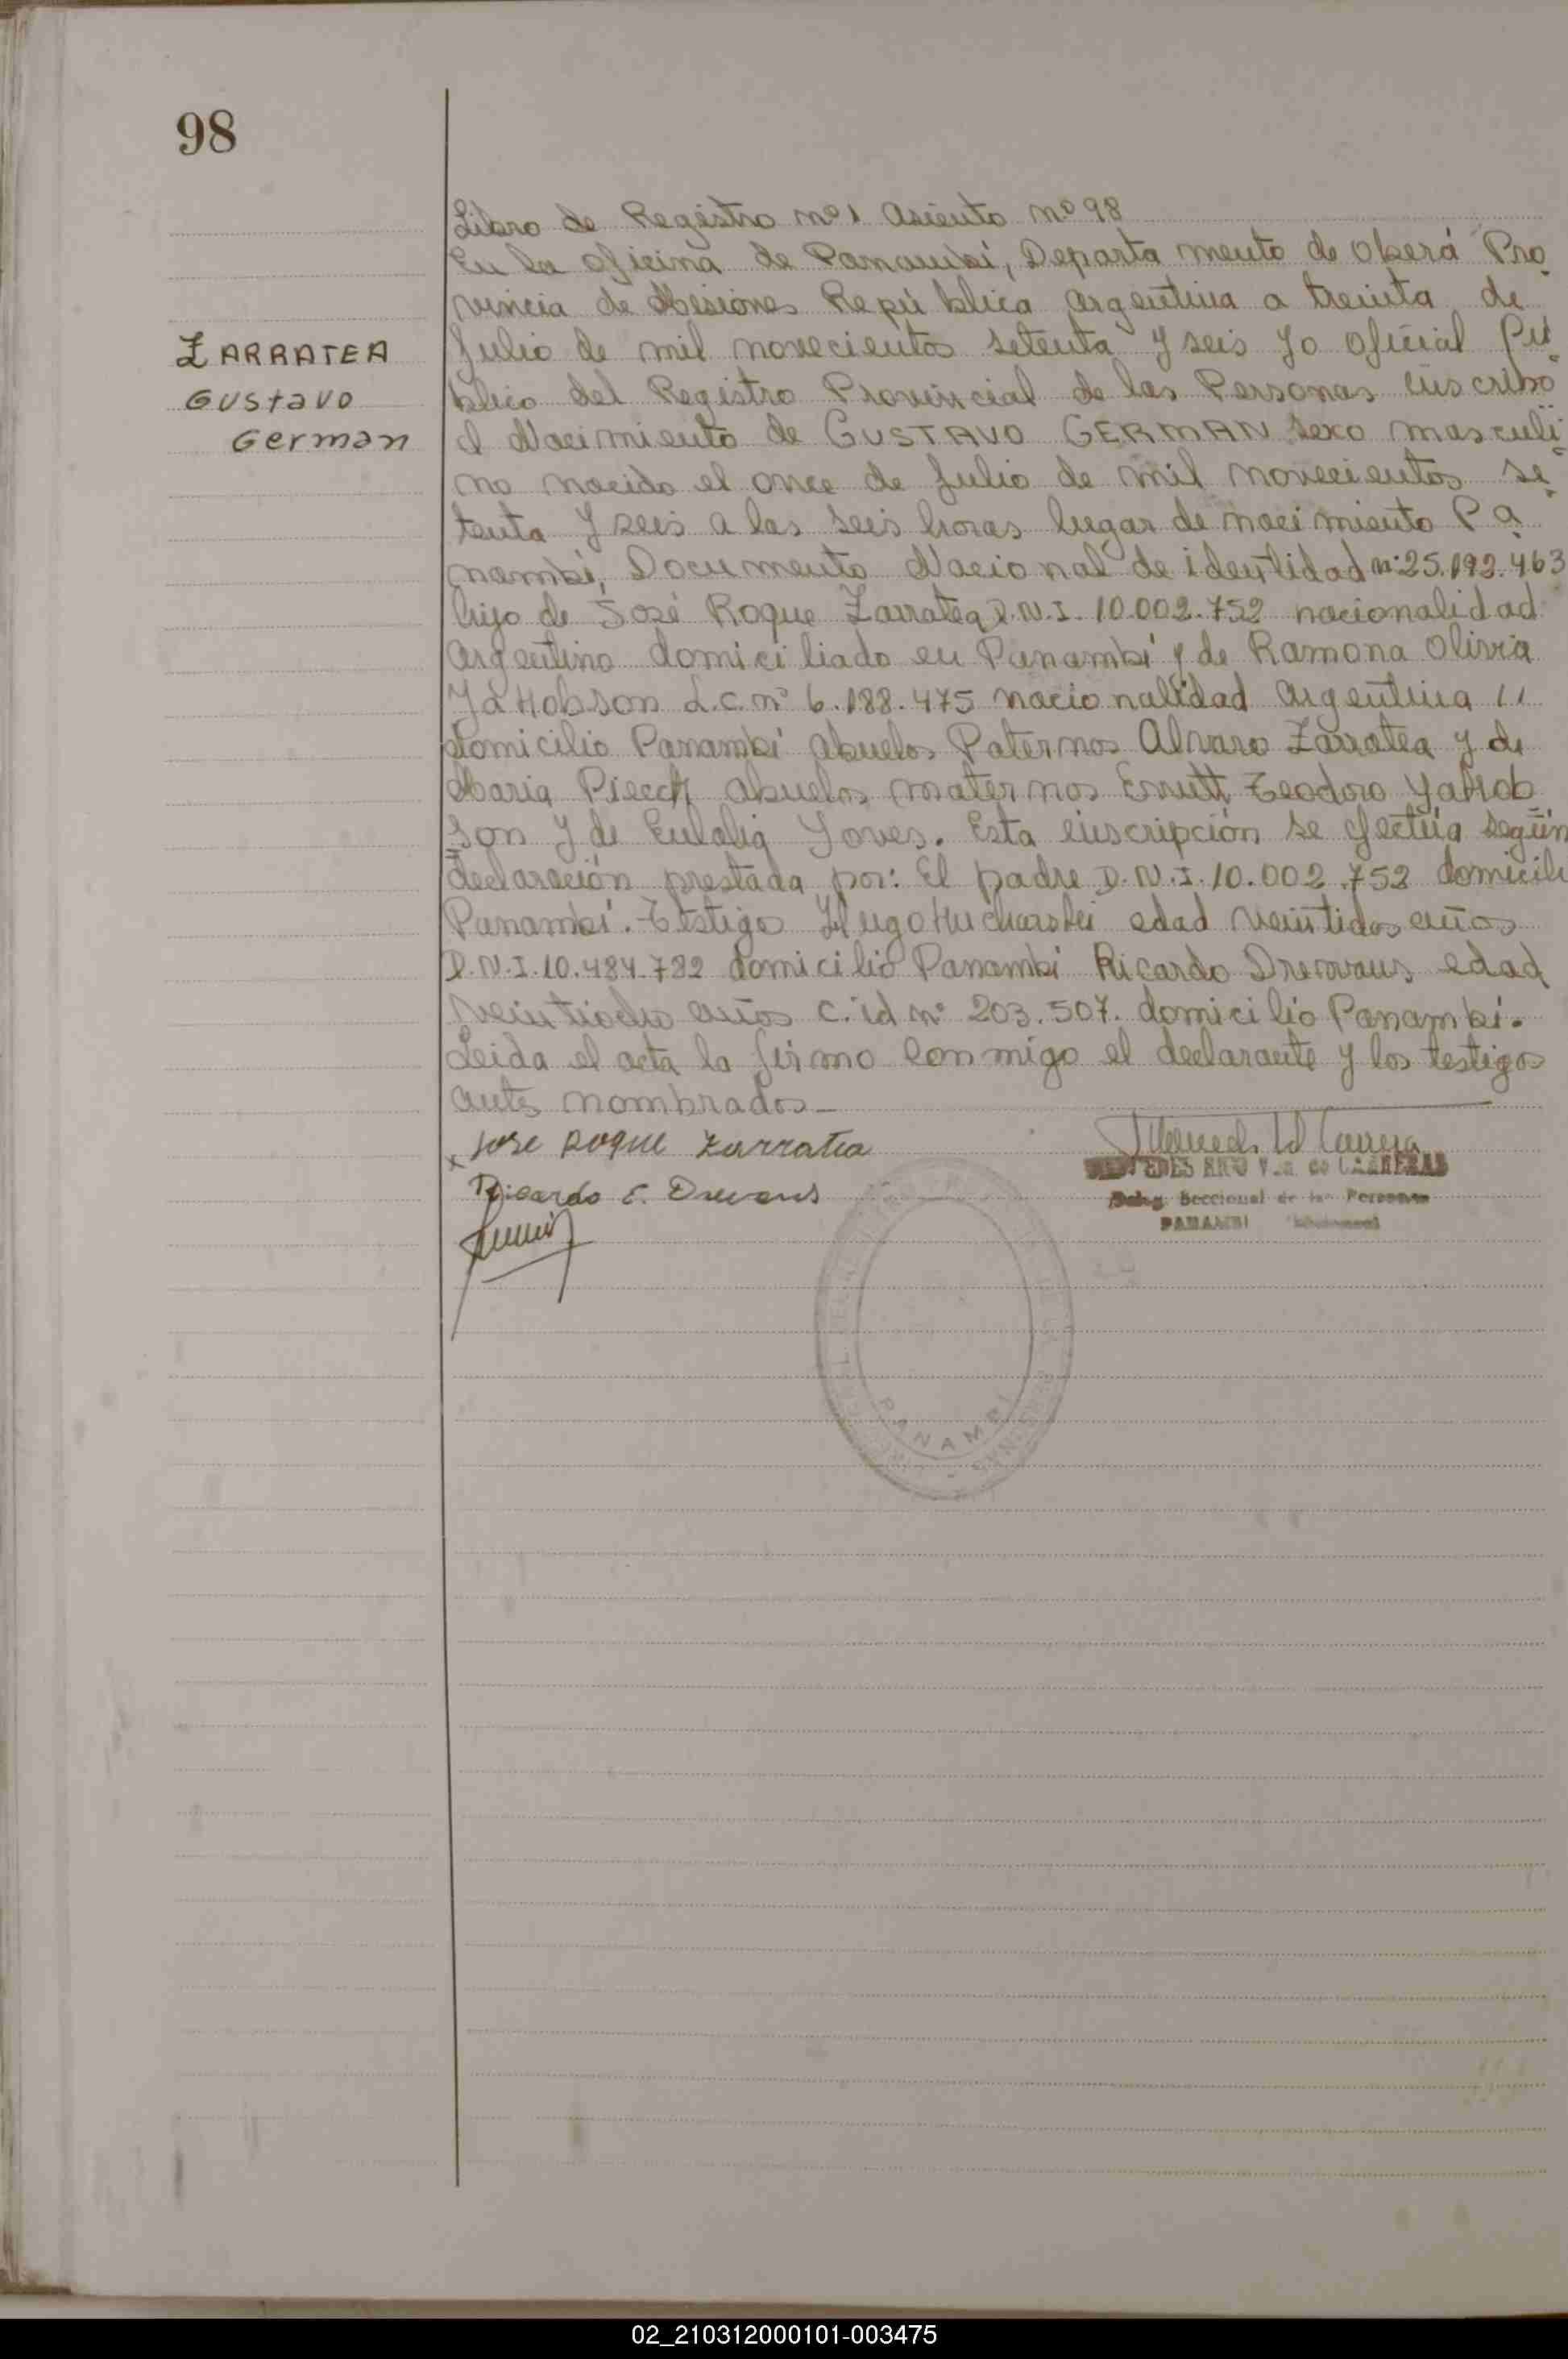 98
Libro de Registro nº 1 Asiento nº 98
En la oficina de Panambí, Departa mento de Oberá Pro
vincia de Misiones Repú blica Argentina a treinta de
ZARRATEA
Julio de mil novecientos setenta y seis yo oficial Pú
Gustavo
blico del Registro Provincial de las Personas inscribo
German
el Nacimiento de GUSTAVO GERMAN sexo masculi
no nacido el once de Julio de mil novecientos se
tenta y seis a las seis horas lugar de nacimiento Pa
nambí, Documento Nacional de identidad nº 25.192.463
hijo de José Roque Zarratea D.N.I. 10.002.752 nacionalidad
Argentino domici liado en Panambí y de Ramona Olivia
YaHobson L.C. nº 6.188.475 nacionalidad Argentina
domicilio Panambí abuelos Paternos Alvaro Zarratea y de
Maria abuelos maternos Teodoro YaHob
son y de Eulalia Yoves. Esta inscripción se efectúa según
declaración prestada por: El padre D.N.I. 10.002.752 domicili
Panambí. Testigo Hugo edad veintidos años
D.N.I. 10.484.782 domicilio Panambí Ricardo edad
años c. id nº 203.507. domicilio Panambí.
Leida el acta la firmo conmigo el declarante y los testigos
antes nombrados
x Jose Roque Zarratea
de CARRERAS
Ricardo E.
Seccional de las Personas
PANAMBI
PANAMBI
02_210312000101-003475